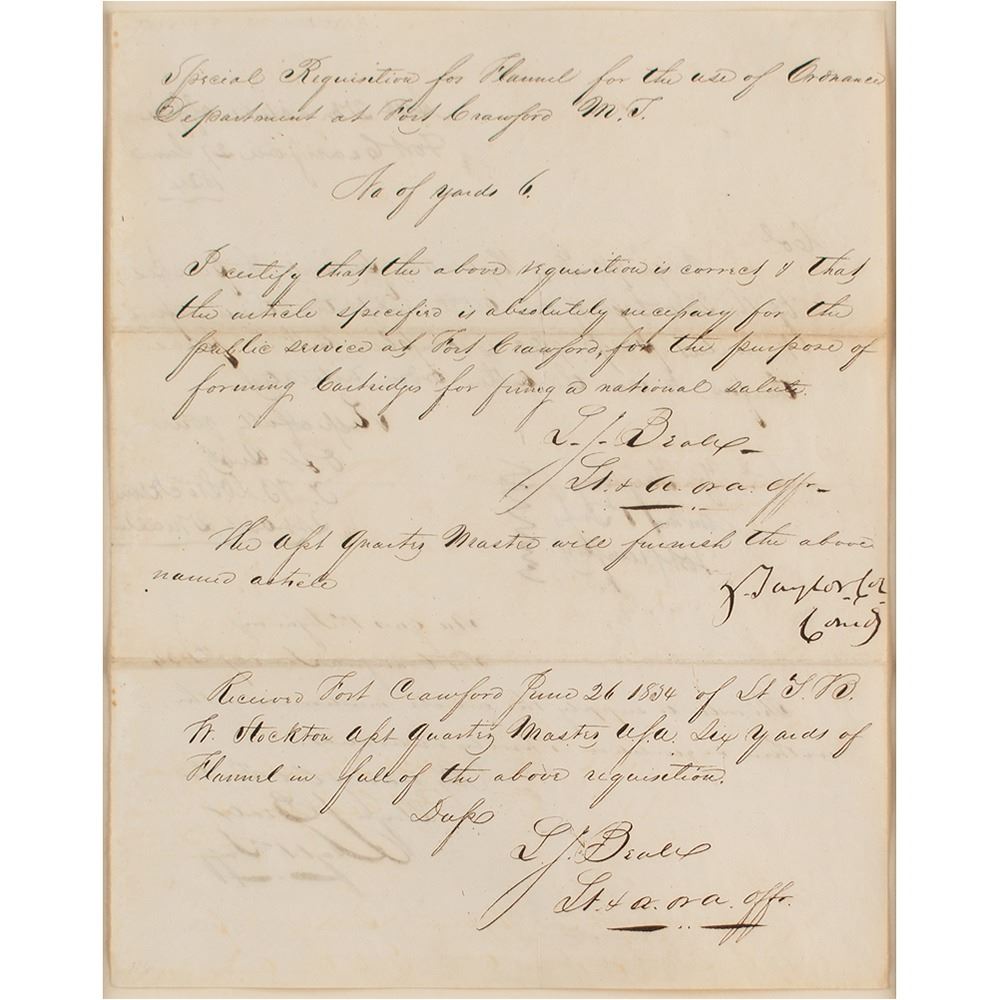 Special Requisition for Flannel for the use of Ordnance
Department at Fort Crawford M.T.
No of yards 6.
I certify that the above requisition is correct & that
the article specified is absolutely necessary for the
public service at Fort Crawford, for the purpose of
forming Cartridges for firing a national salute.
L. J. Beale
Lt. & a. ord. offr.
The Asst Quarter Master will furnish the above
named article
Z. Taylor Col
Comdg
Received Fort Crawford June 26 1834 of Lt T. B.
W. Stockton Asst Quarter Master U.S.A. Six yards of
Flannel in full of the above requisition.
Dupe
L. J. Beale
Lt. & a. ord. offr.